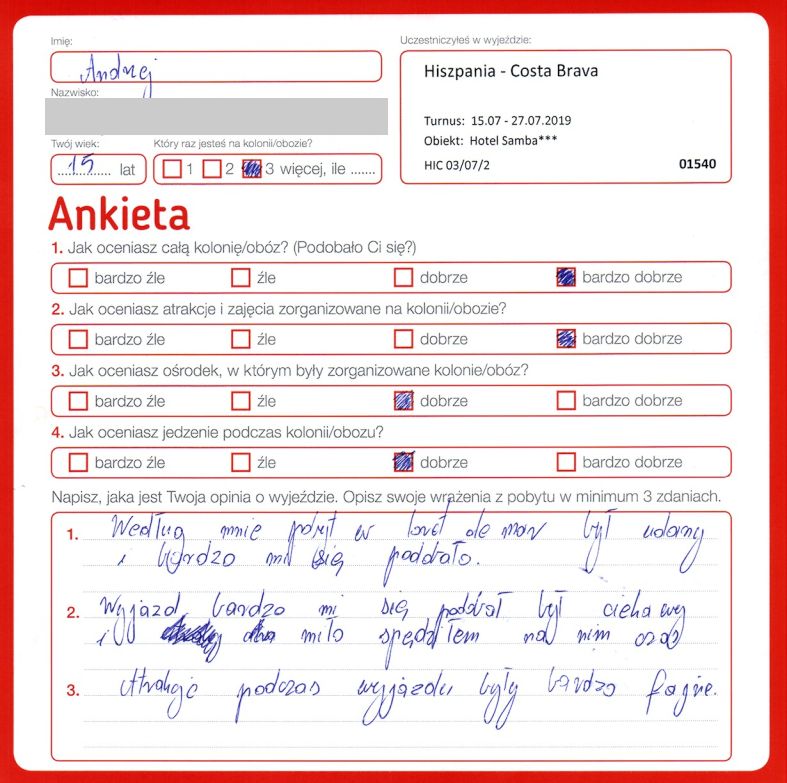 Imię:
Andrzej
Nazwisko:
Twój wiek:
15 lat
Który raz jesteś na kolonii/obozie?
1 2 3 więcej, ile .......
Uczestniczyłeś w wyjeździe:
Hiszpania - Costa Brava
Turnus: 15.07 - 27.07.2019
Obiekt: Hotel Samba***
HIC 03/07/2 01540
Ankieta
1. Jak oceniasz całą kolonię/obóz? (Podobało Ci się?)
bardzo źle źle dobrze bardzo dobrze
2. Jak oceniasz atrakcje i zajęcia zorganizowane na kolonii/obozie?
bardzo źle źle dobrze bardzo dobrze
3. Jak oceniasz ośrodek, w którym były zorganizowane kolonie/obóz?
bardzo źle źle dobrze bardzo dobrze
4. Jak oceniasz jedzenie podczas kolonii/obozu?
bardzo źle źle dobrze bardzo dobrze
Napisz, jaka jest Twoja opinia o wyjeździe. Opisz swoje wrażenia z pobytu w minimum 3 zdaniach.
1. Według mnie pobyt w loret de mar był udany
i bardzo mi się podobało.
2. Wyjazd bardzo mi się podobał był ciekawy
i miło spędziłem na nim czas
3. Atrakcje podczas wyjazdu były bardzo fajne.